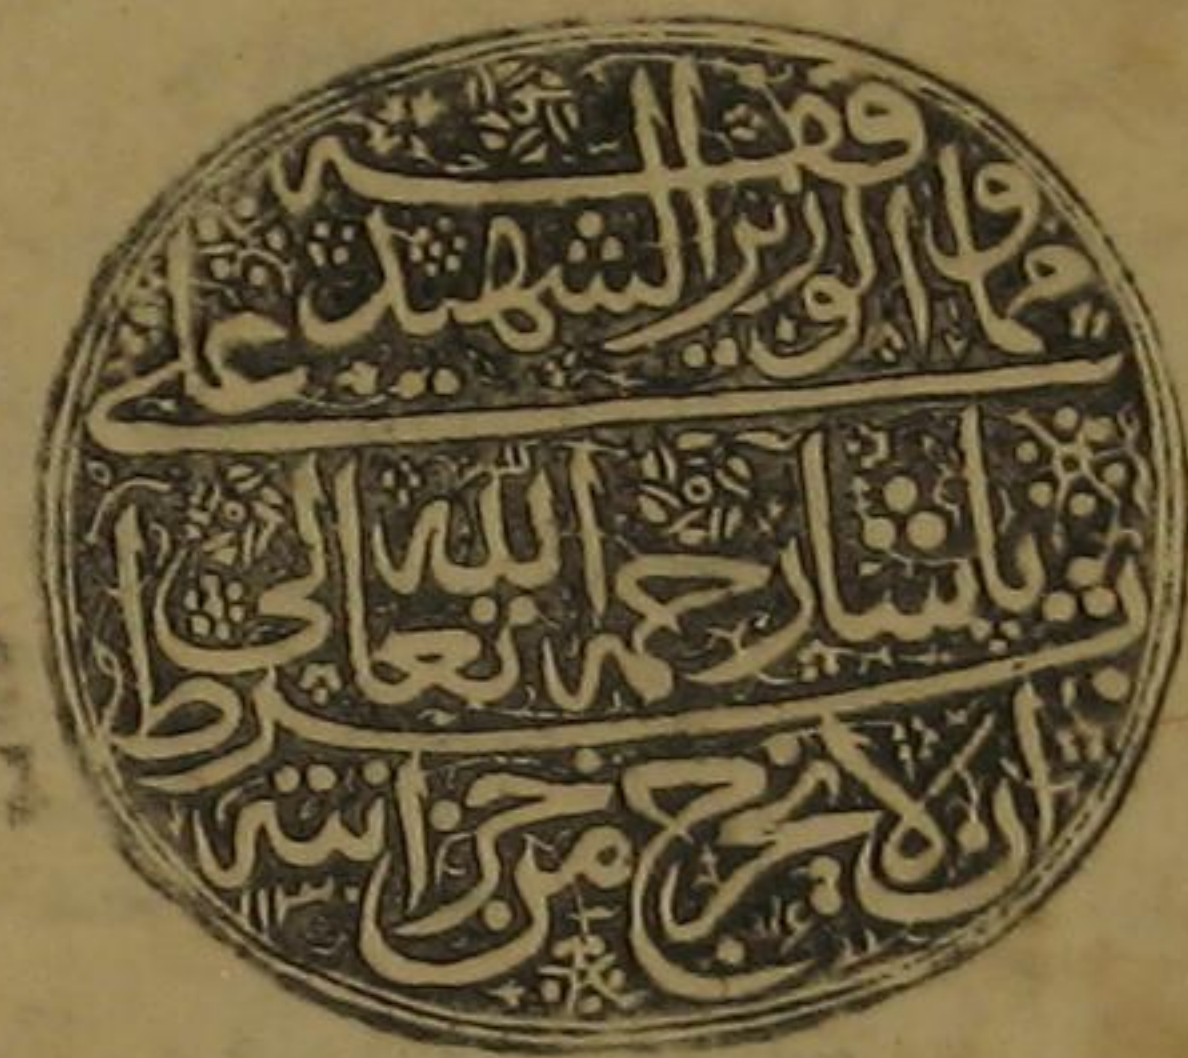 مما وقفه الوزير الشهيد على
پاشا رحمه الله تعالى بشرط
ان لا يخرج من خزانته ١١٣٠